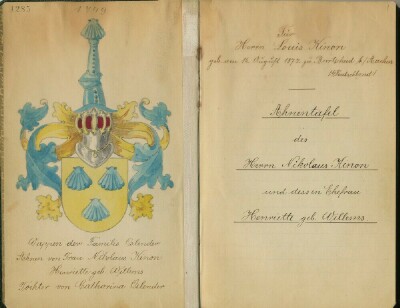 1283
Wappen der Familie Colender
Ahnen von Frau Nikolaus Kenon
Henriette geb. Willems
Tochter von Catharina Colender
Für
Herrn Louis Kenon
geb. am 14. August 1872 zu Burtscheid b/ Aachen
Ahnentafel
des
Herrn Nikolaus Kenon
und dessen Ehefrau
Henriette geb. Willems.